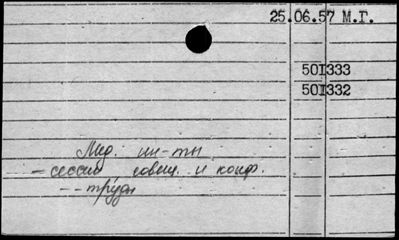 25.06.57 М.Г.
501333
501332
Мед. ин-ты
- сессии совещ. и конф.
-- труды